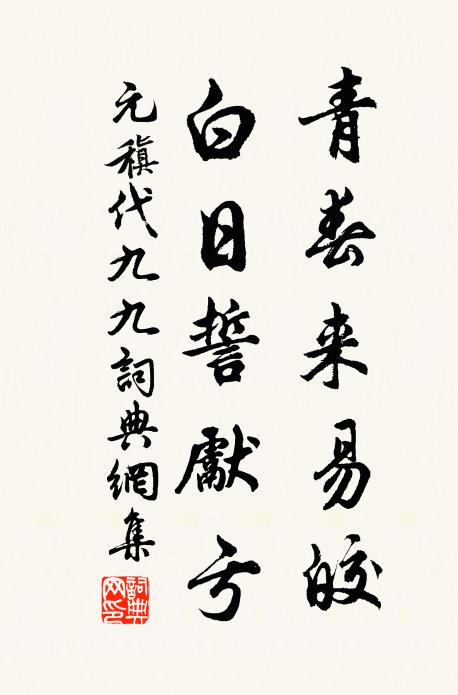 青春来易皎
白日誓獻亏
元稹代九九詞典網集
詞典網印